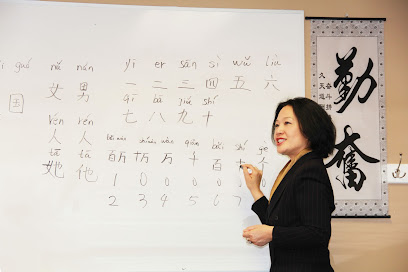 guó nǚ nán yī er sān sì wǔ liù
国 女 男 一 二 三 四 五 六
qī bā jiǔ shí
七 八 九 十
rén rén
人 人 bǎi wàn shí wàn wàn qiān bǎi shí ge
tā tā 百万 十万 万 千 百 十 个
她 他 1 0 0 0 0
2 3 4 5 6 7
勤
奮